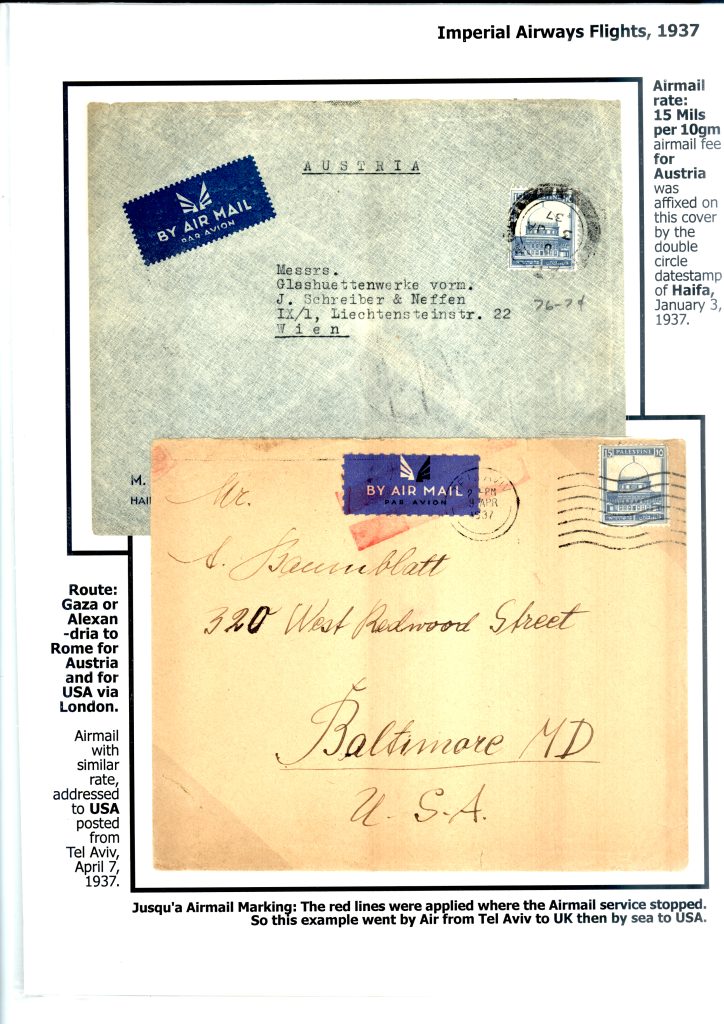 Imperial Airways Flights, 1937
Airmail
rate:
15 Mils
per 10gm
airmail fee
for
Austria
was
affixed on
this cover
by the
double
circle
datestamp
of Haifa,
January 3,
1937.
AUSTRIA
BY AIR MAIL
PAR AVION
Messrs.
Glashuettenwerke vorm.
J. Schreiber & Neffen
IX/1, Liechtensteinstr. 22
Wien
M.
HAI
BY AIR MAIL
PAR AVION
PM
APR
1937
15 PALESTINE 10
Mr.
S. Baumblatt
320 West Redwood Street
Baltimore MD
U.S.A.
Route:
Gaza or
Alexan
-dria to
Rome for
Austria
and for
USA via
London.
Airmail
with
similar
rate,
addressed
to USA
posted
from
Tel Aviv,
April 7,
1937.
Jusqu'a Airmail Marking: The red lines were applied where the Airmail service stopped.
So this example went by Air from Tel Aviv to UK then by sea to USA.